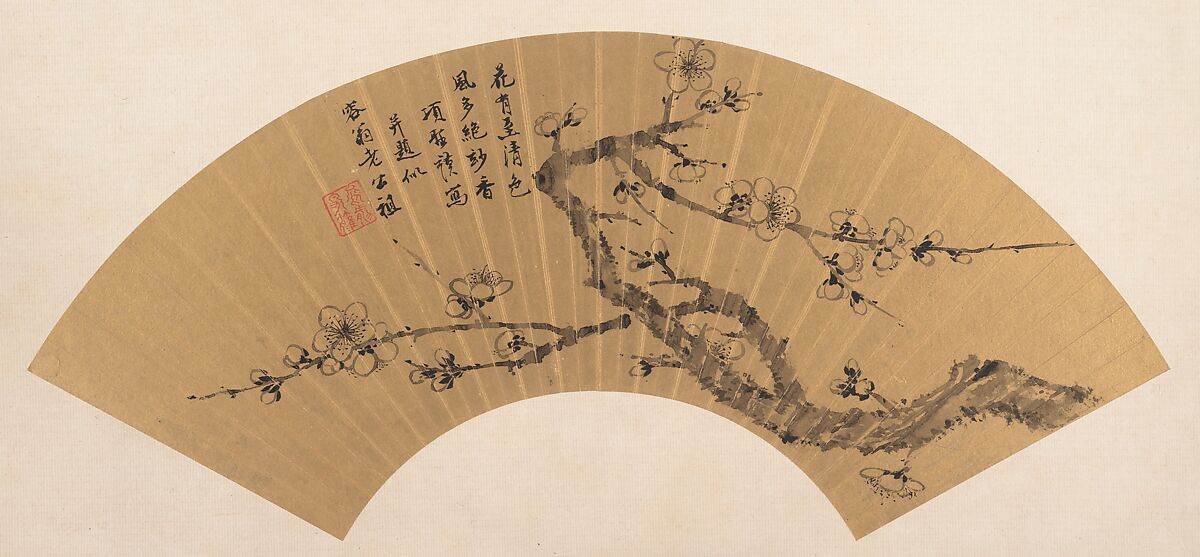 花有至清色
風多絶妙香
項聖謨寫
并題似
蓉翁老公祖